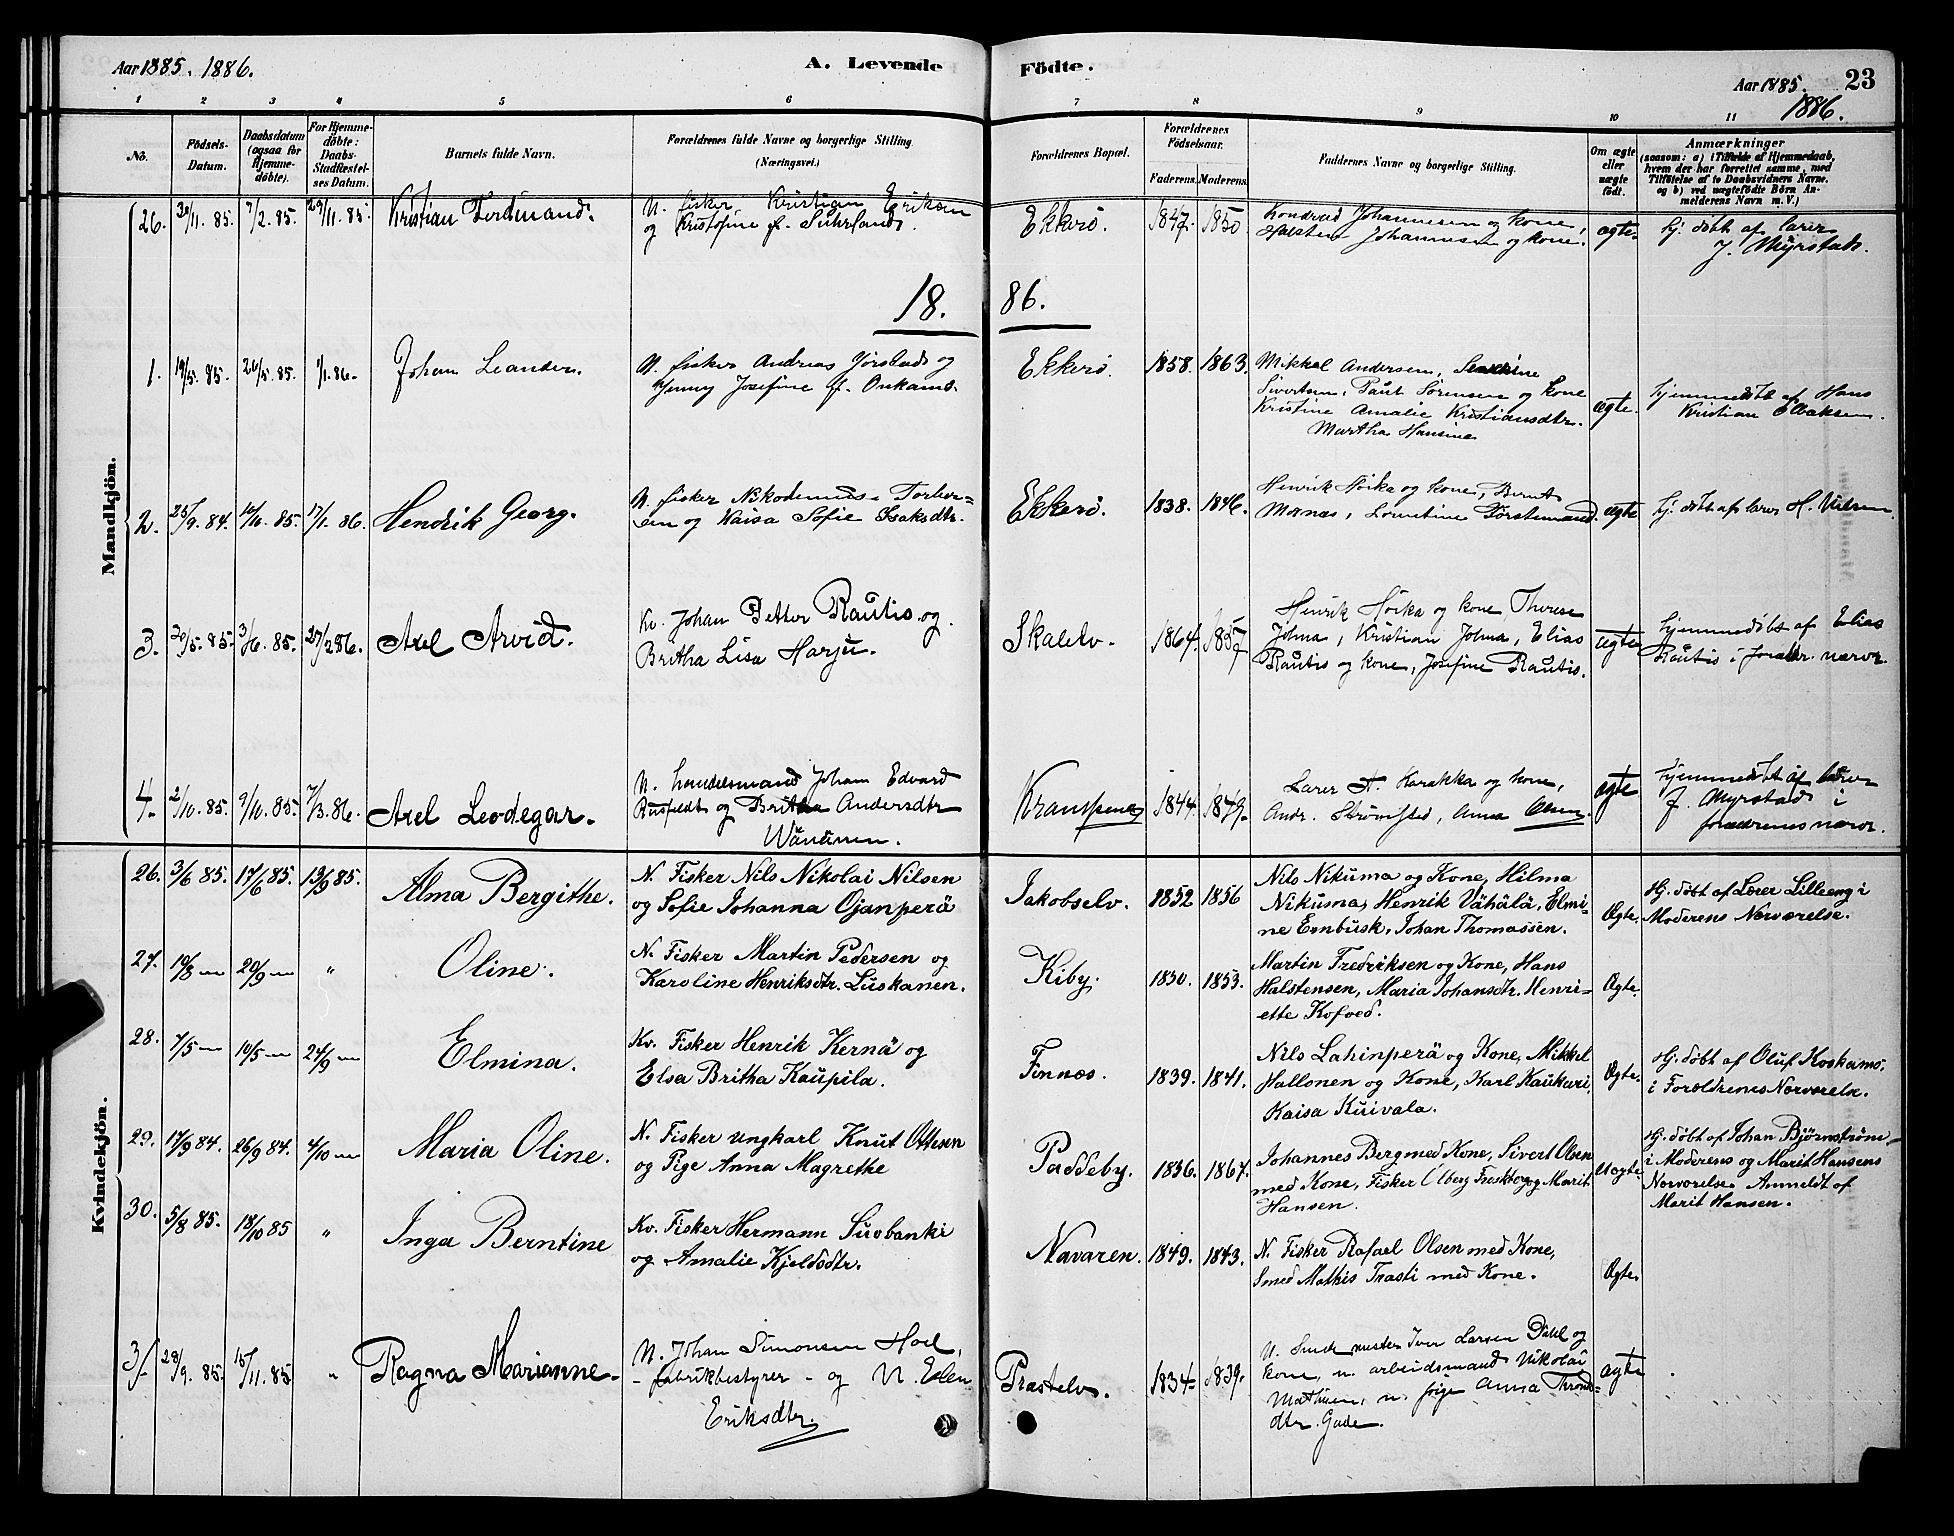 Aar 1885. 1886.
A. Levende
Födte.
Aar 1885.
1886.
23
1 2 3 4 5 6 7 8 9 10 11
No.
Födsels-Datum.
Daabsdatum (ogsaa for Hjemme-döbte).
For Hjemme-döbte: Daabs-Stadfæstel-ses Datum.
Barnets fulde Navn.
Forældrenes fulde Navne og borgerlige Stilling
(Næringsvei.)
Forældrenes Bopæl.
Forældrenes Födselsaar.
Faderens. Moderens.
Faddernes Navne og borgerlige Stilling.
Om ægte eller uægte födt.
Anmærkninger
(saasom: a) i Tilfælde af Hjemmedaab, hvem der har forrettet samme, med Tilföielse af to Daabsvidners Navne, og b) ved uægtefödte Börn An-melderens Navn m. V.)
Mandkjön.
26. 30/11. 85. 7/2. 85. 29/11. 85. Kristian Ferdinand.
N. fisker Kristian Eriksen
og Kristofine f. Suhrland.
Ekkerö. 1847. 1850.
Kondrad Johannesen og kone,
Halsten Johannesen og kone.
ægte.
hj. döbt af lærer
J. Myrstad.
18. 86.
1. 19/5. 85. 26/5. 85. 1/1. 86. Johan Leander.
N. fisker Andreas Jörstad og
Jenny Josefine f. Onkamo.
Ekkerö. 1858. 1863.
Mikkel Andersen,
Sivertsen, Paul Sörensen og kone
Kristine Amalie Kristiansdtr.
Martha Hansine
ægte.
hjemmedöbt af Hans
Kristian Isaksen.
2. 25/9. 84. 10/10. 85. 17/1. 86. Hendrik Georg.
N. fisker Nikodemus Torber-
sen og Kaisa Sofie Isaksdtr.
Ekkerö. 1838. 1846.
Henrik Höika og kone, Bernt
Mornæs,
ægte
hj. döbt af lærer H. Nilsen.
3. 30/5. 85. 3/6. 85. 27/2 86. Axel Arvid.
Kv. Johan Petter Rautio og
Britha Lisa Harju.
Skaletv. 1864. 1857
Henrik Höika og kone, Therese
Jolma, Kristian Jolma, Elias
Rautio og kone, Josefine Rautio.
ægte
hjemmedöbt af Elias
Rautio i forældr. nærv.
4. 2/10. 85. 9/10. 85. 7/3. 86. Axel Leodegar.
N. Lendsmand Johan Edvard
Busfeldt og Britha Andersdtr
Wänänen.
Krampenæs 1844. 1849.
Lærer A. Karakka og kone,
Andr. Strömsted, Anna Olsen.
ægte
hjemmedöbt af lærer
J. Myrstad i
forældrenes nærv.
Kvindekjön.
26. 3/6 85. 17/6 85. 13/9 85. Alma Bergithe.
N. Fisker Nils Nikolai Nilsen
og Sofie Johanna Ojanperä
Jakobselv. 1852 1856
Nils Nikuma og Kone, Hilma
Nikuma, Henrik Vähälä, Elmi-
ne Ernbusk, Johan Thomassen.
Ægte.
Hj. döbt af Lærer Lilleeng i
Moderens Nærværelse.
27. 19/8 — 20/9 — " Oline.
N. Fisker Martin Pedersen og
Karoline Henriksdtr. Luskanen.
Kiby. 1830. 1853.
Martin Fredriksen og Kone, Hans
Halstensen, Maria Johansdtr. Henri-
ette Kofoed.
Ægte.
28. 7/5 — 10/5 — 24/9 — Elmina.
Kv. Fisker Henrik Kernä og
Elsa Britha Kaupila.
Finnæs. 1839. 1841.
Nils Lahinperä og Kone, Mikkel
Hallonen og Kone, Karl Kaukari,
Kaisa Kuivala.
Ægte.
Hj. döbt af Oluf Koskamo,
i Forældrenes Nærværelse.
29. 17/9 84. 26/9 84. 4/10 — Maria Oline.
N. Fisker ungkarl Knut Ottesen
og Pige Anna Magrethe
Paddeby. 1836. 1867.
Johannes Berg med Kone, Sivert Olsen
med Kone, Fisker og Marit
Hansen.
Uægte.
Hj. döbt af Johan Björnström
i Moderens og Marit Hansens
Nærværelse. Anmeldt af
Marit Hansen.
30. 5/8 85. 18/10 85 " Inga Berntine
Kv. Fisker Hermann Suobanki
og Amalie Kjeldsdtr.
Navaren. 1849. 1843.
N. Fisker Rafael Olsen med Kone,
Smed Mathis Trasti med Kone.
Ægte.
31. 28/9. 85. 15/11. 85 " Ragna Marianne.
N. Johan Simonsen Hoel,
- fabrikbestyrer - og N. Elen
Eriksdtr.
Præstelv. 1834. 1839.
N. Iver Larsen Dahl og
kone, n. arbeidsmand Nikolai
Mathisen, n. pige Anna Thrond-
dtr. Gade.
ægte